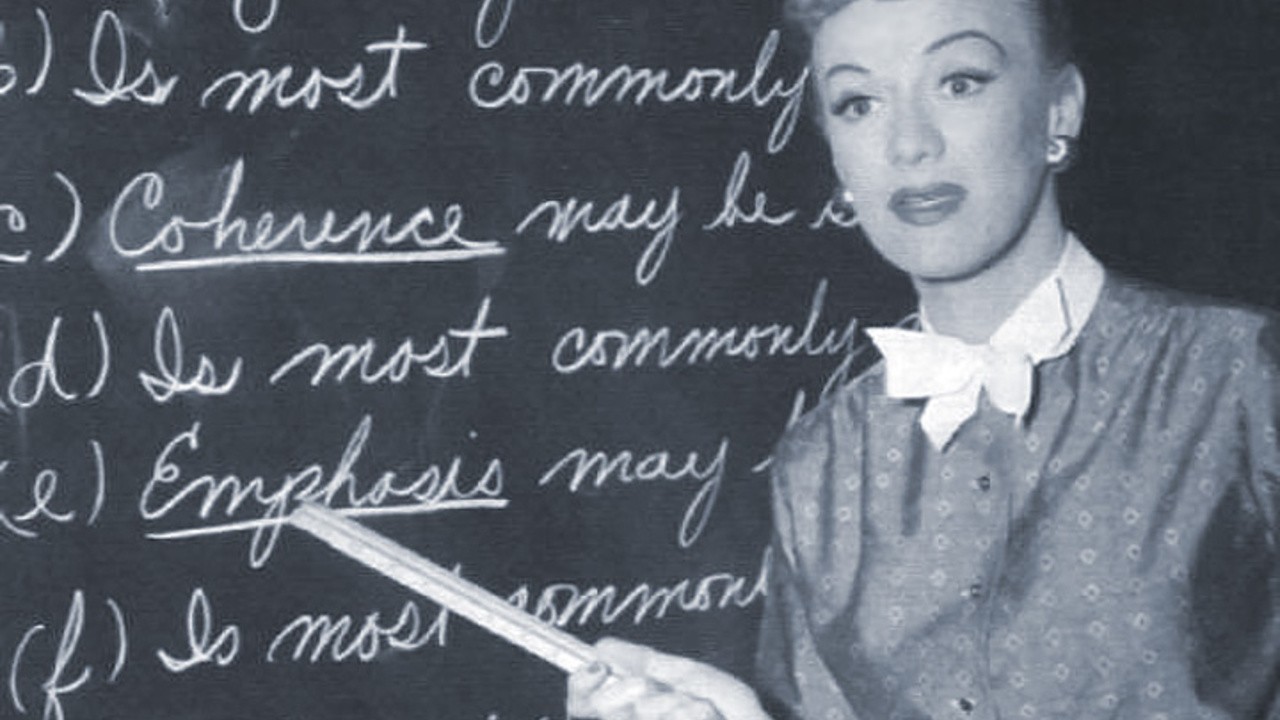 b) Is most commonly
c) Coherence may be
(d) Is most commonly
(e) Emphasis may
(f) Is most commonl